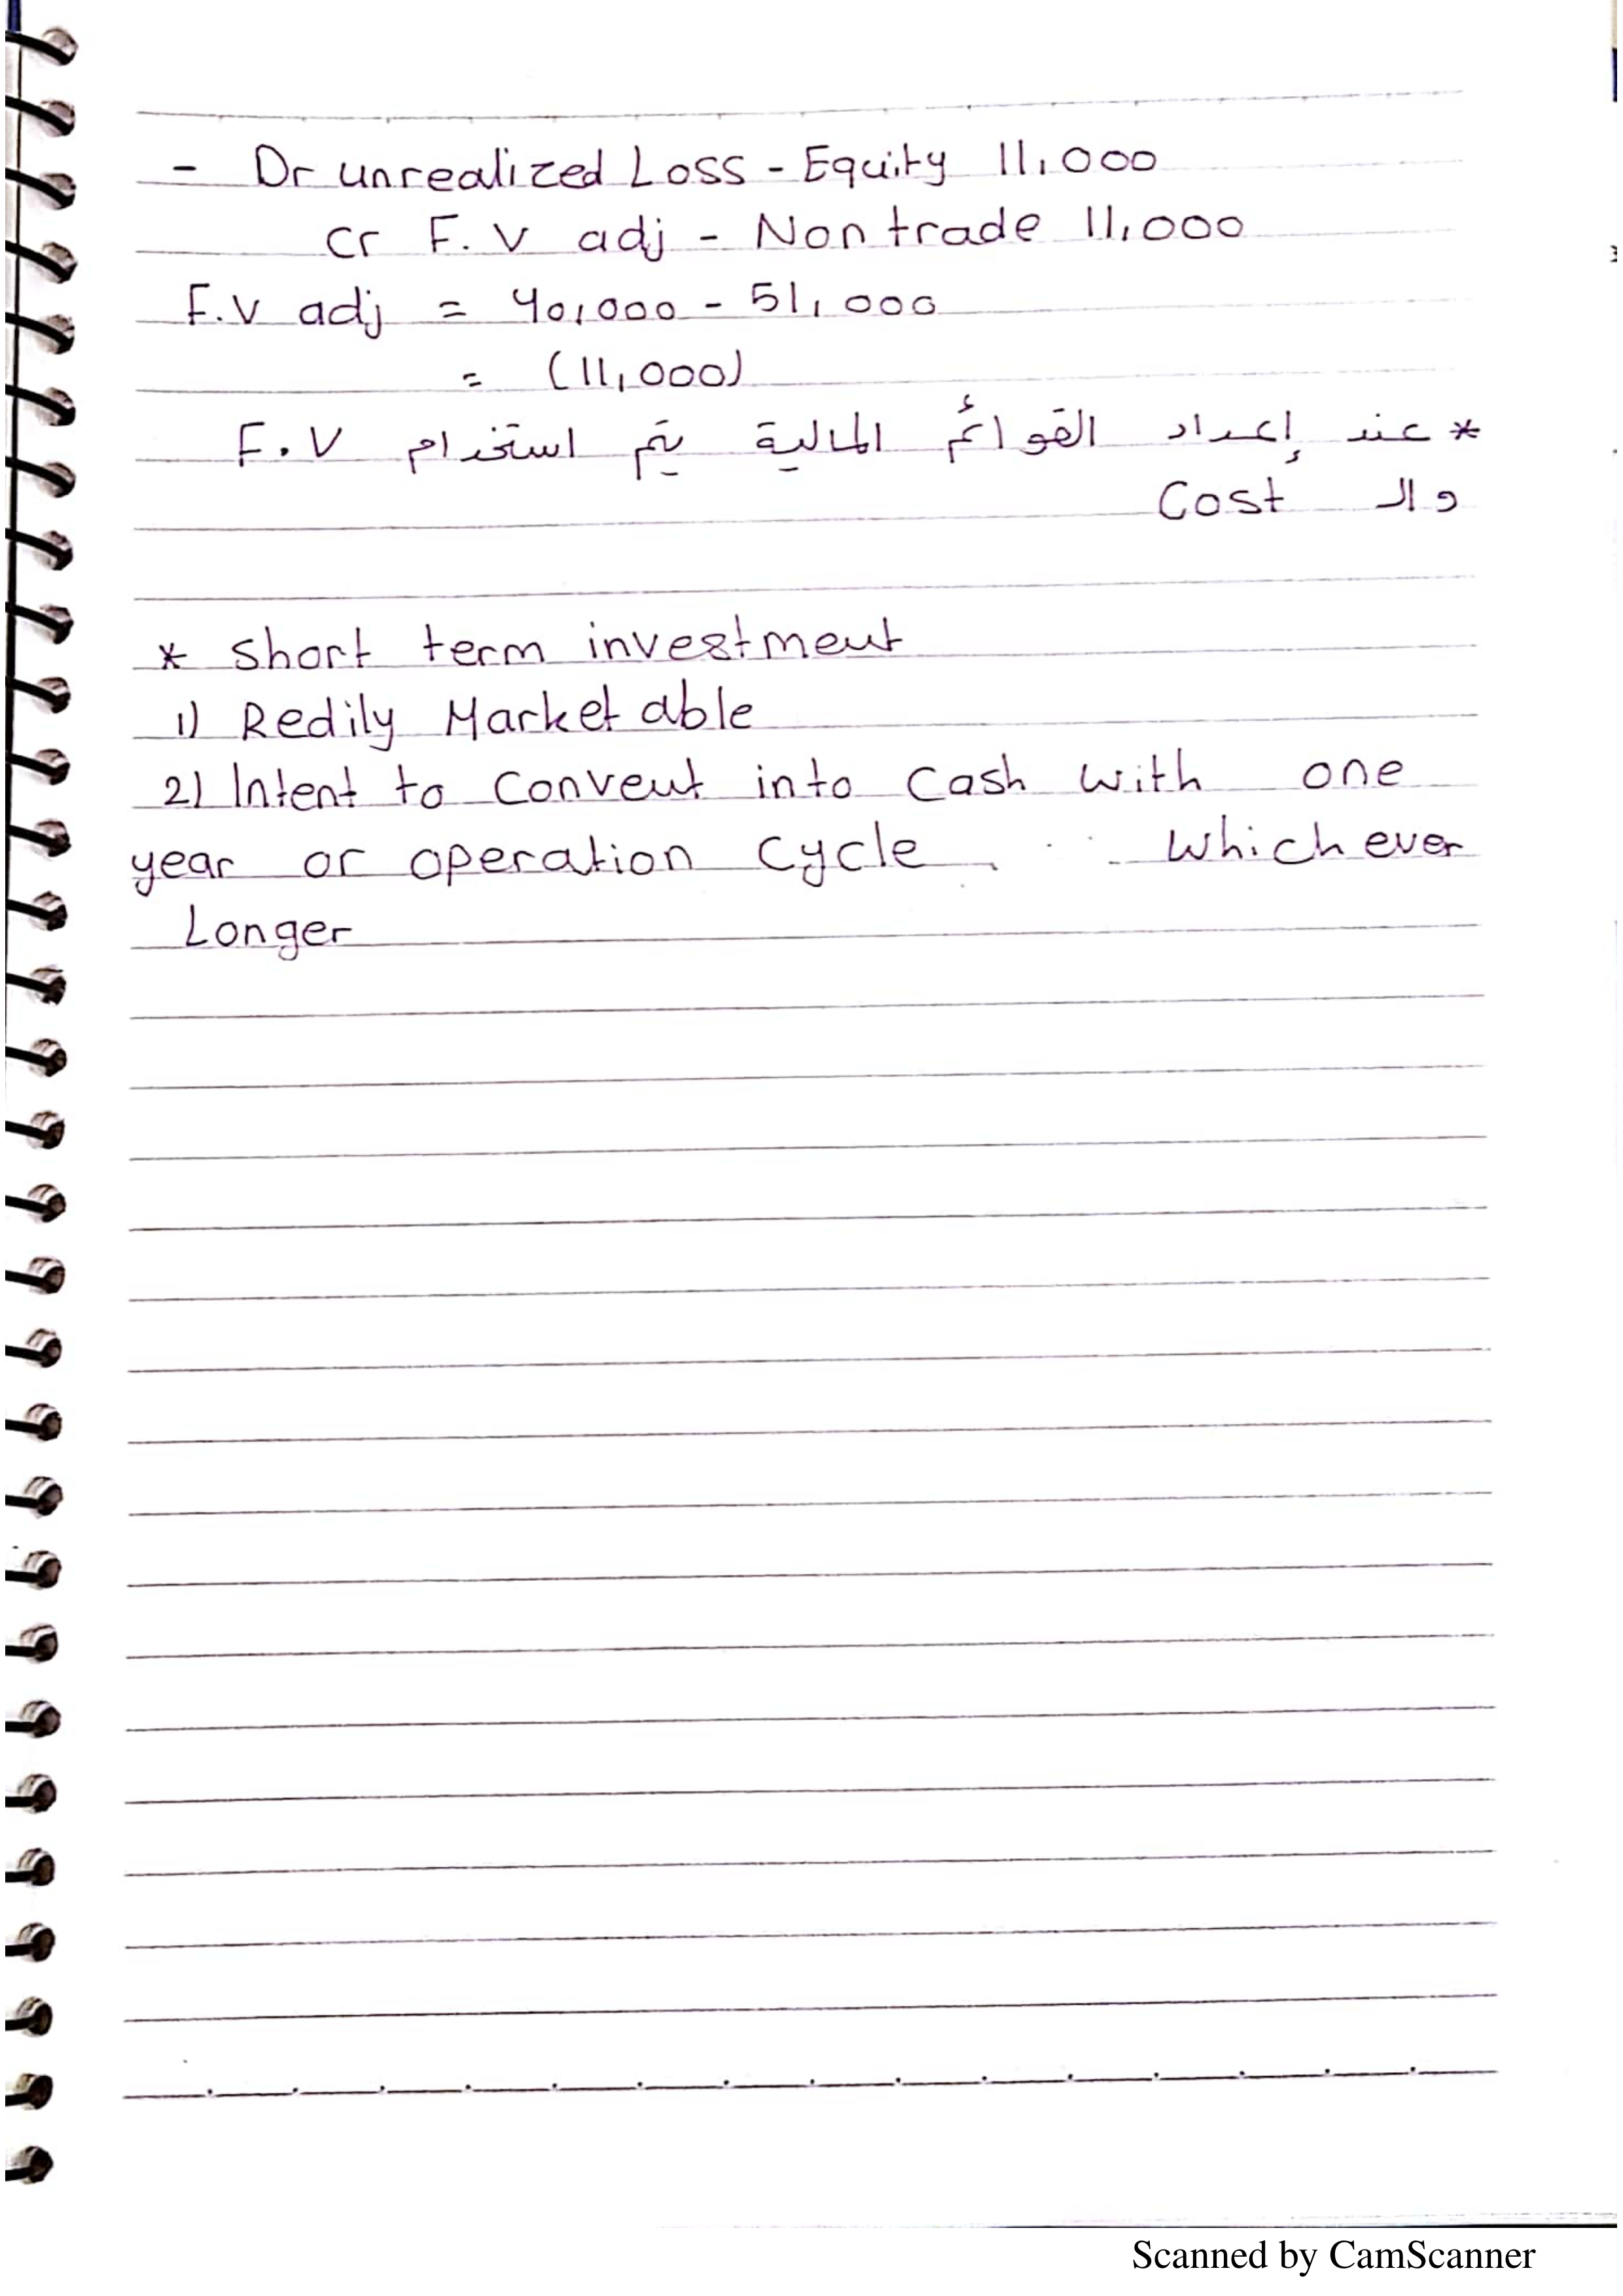 - Dr unrealized Loss - Equity 11,000
cr F.V adj - Non trade 11,000
F.V adj = 40,000 - 51,000
= (11,000)
* عند إعداد القوائم المالية يتم استخدام F.V
والـ Cost
* Short term investment
1) Redily Marketable
2) Intent to Convent into Cash with one
year or operation Cycle. Which ever
Longer
Scanned by CamScanner